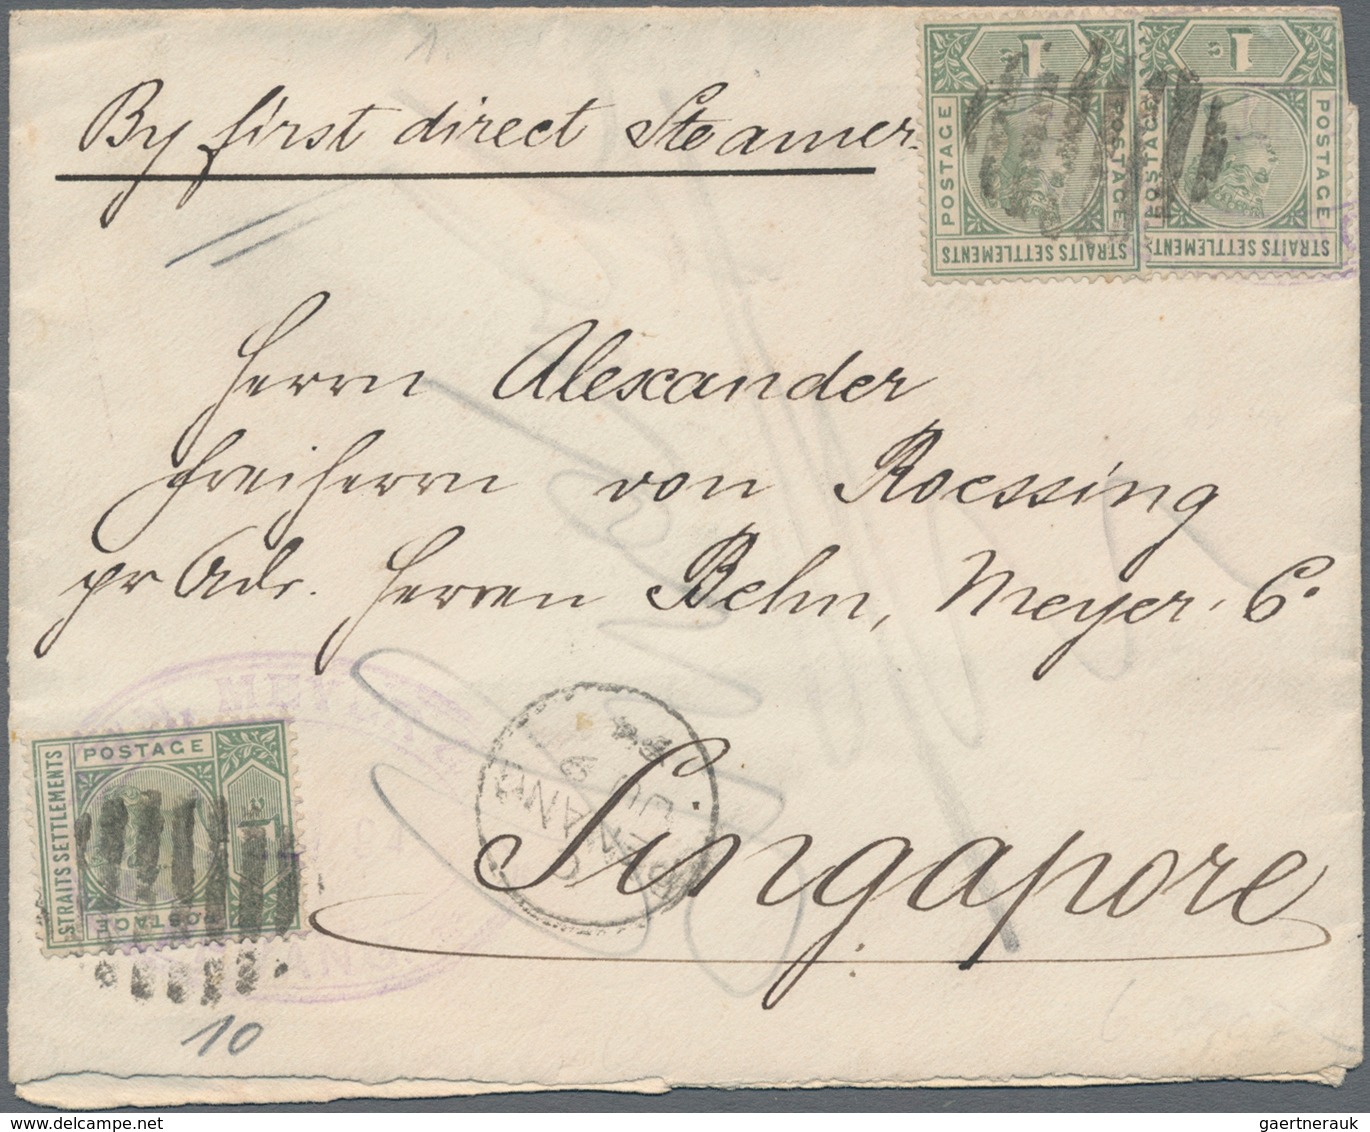 By first direct Steamer
1 c
POSTAGE
POSTAGE
STRAITS SETTLEMENTS
1 c
POSTAGE
POSTAGE
STRAITS SETTLEMENTS
Herrn Alexander
Freiherrn von Roessing
pr Adr. Herren Behn, Meyer, Co
Singapore
PENANG
STRAITS SETTLEMENTS
POSTAGE
POSTAGE
1 c
10
gaertnerauk